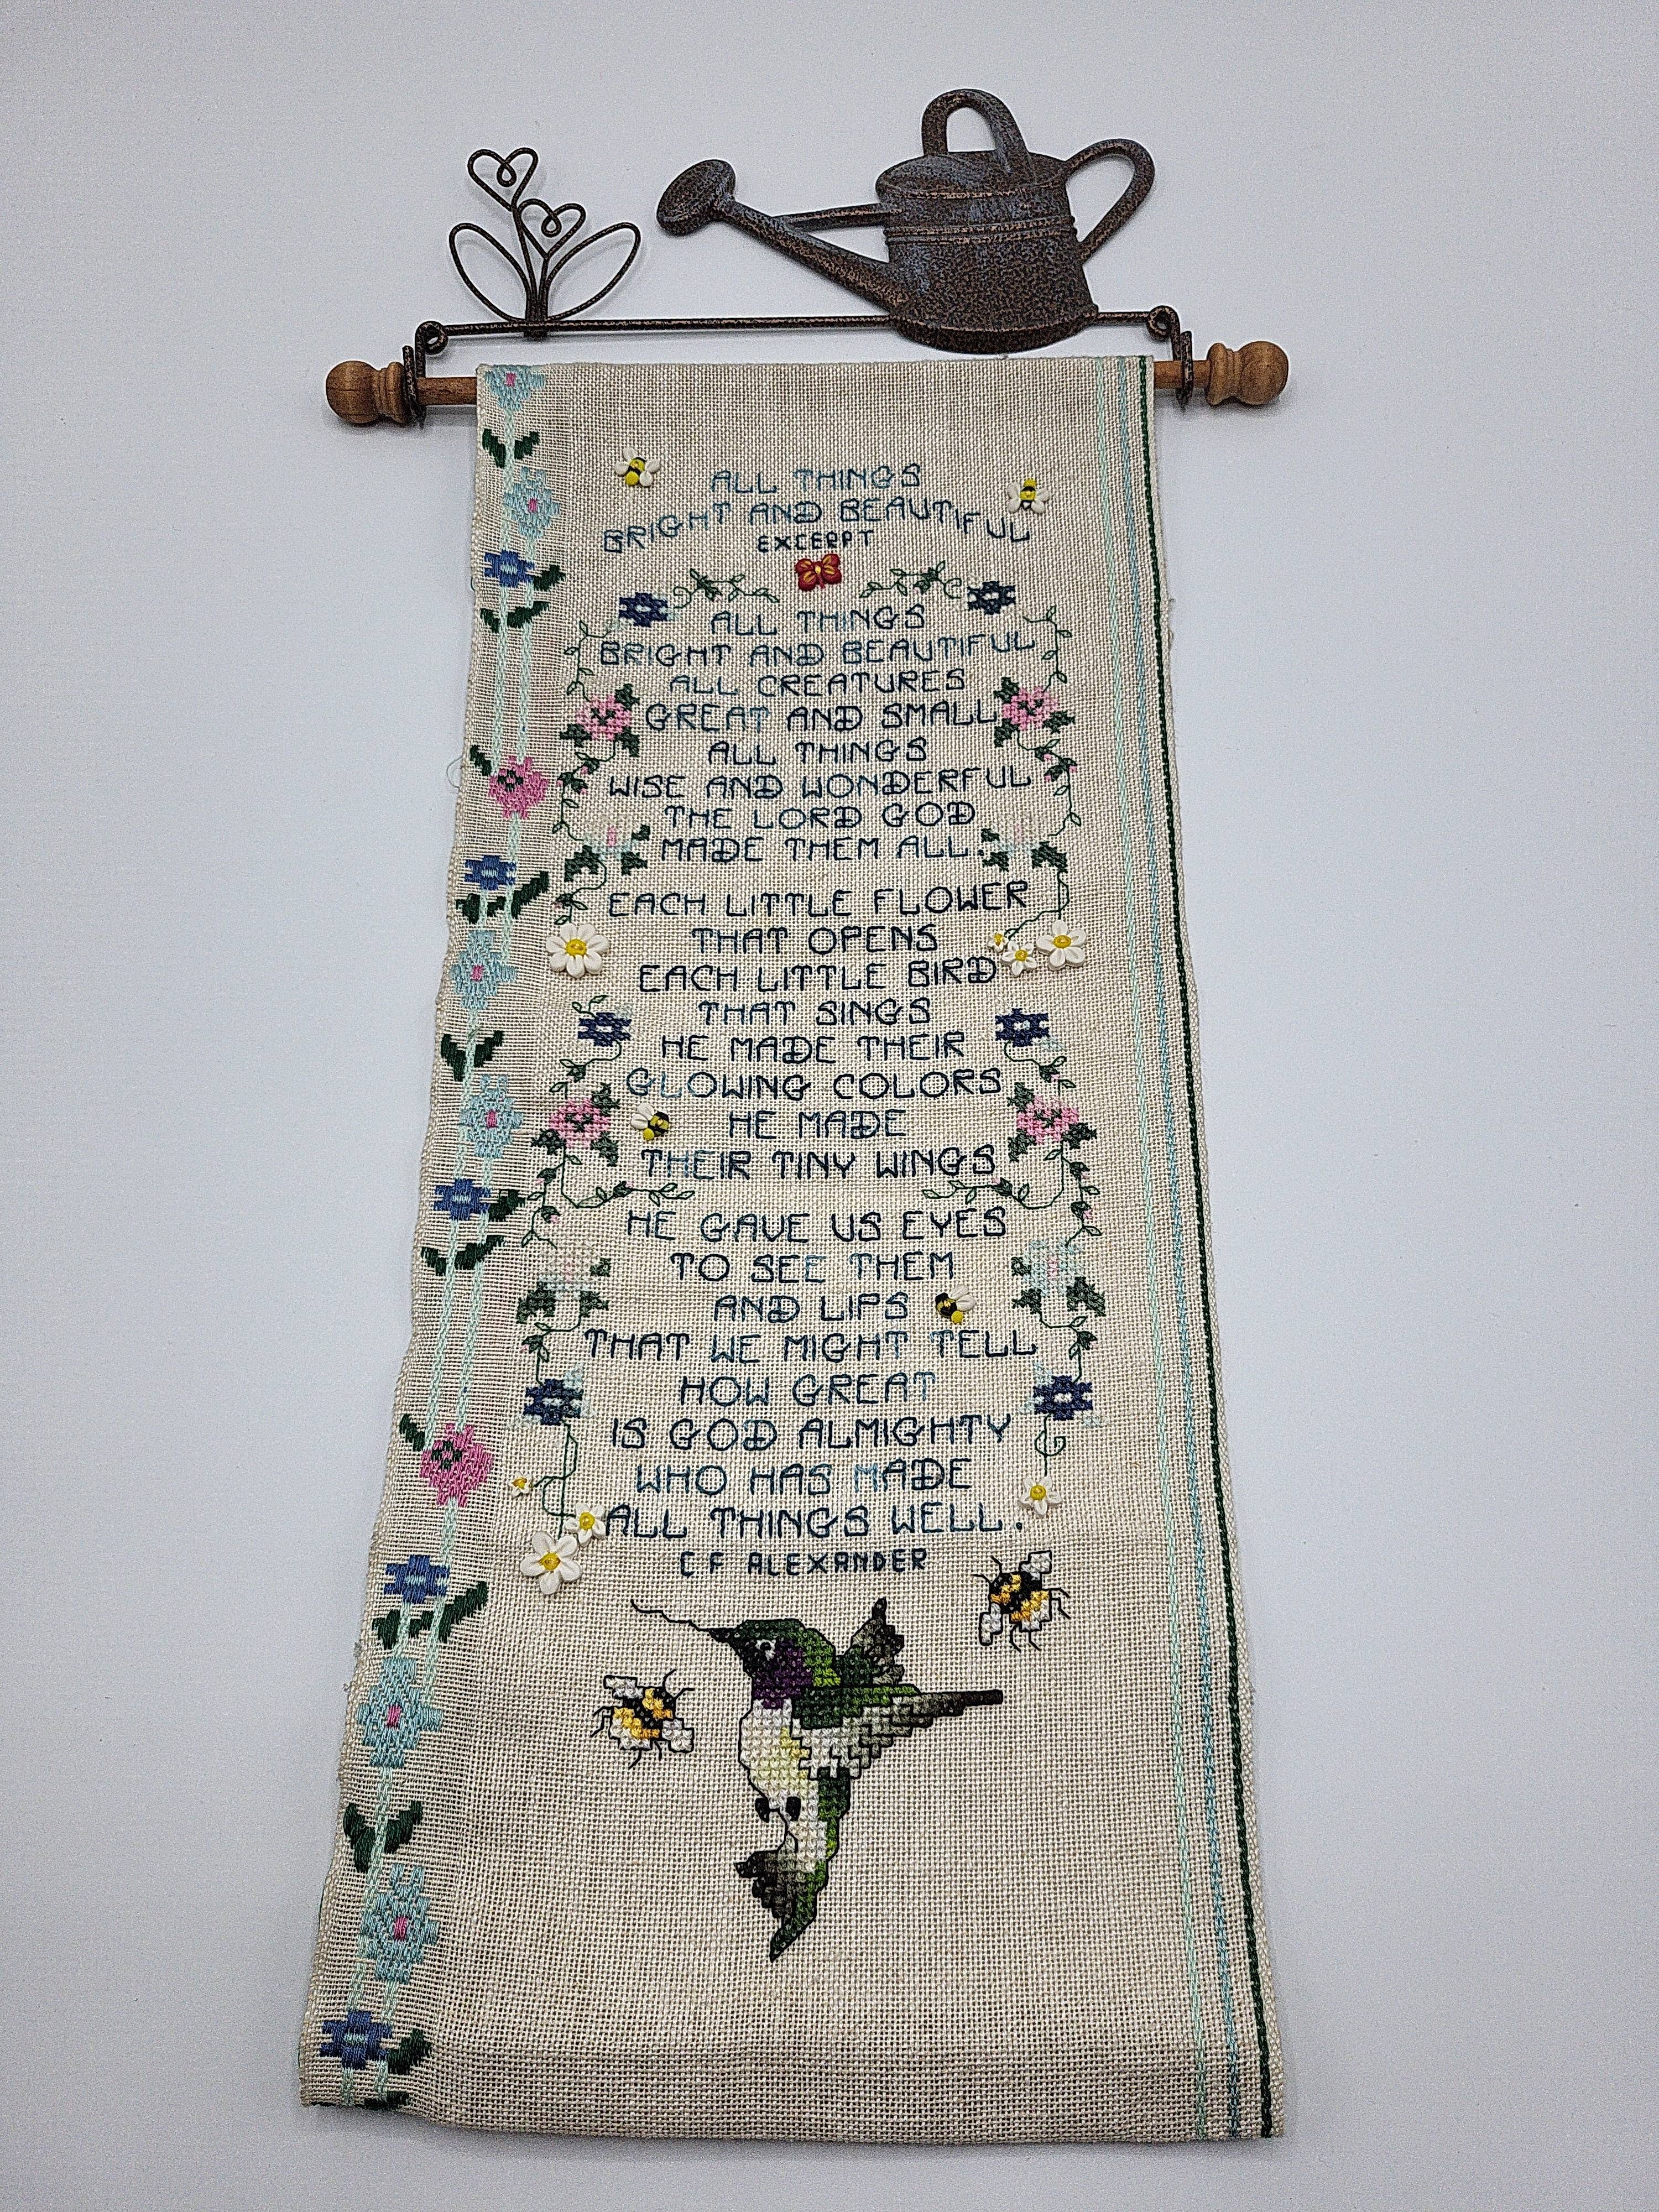 ALL THINGS
BRIGHT AND BEAUTIFUL
EXCERPT
ALL THINGS
BRIGHT AND BEAUTIFUL
ALL CREATURES
GREAT AND SMALL
ALL THINGS
WISE AND WONDERFUL
THE LORD GOD
MADE THEM ALL.
EACH LITTLE FLOWER
THAT OPENS
EACH LITTLE BIRD
THAT SINGS
HE MADE THEIR
GLOWING COLORS
HE MADE
THEIR TINY WINGS
HE GAVE US EYES
TO SEE THEM
AND LIPS
THAT WE MIGHT TELL
HOW GREAT
IS GOD ALMIGHTY
WHO HAS MADE
ALL THINGS WELL.
C F ALEXANDER